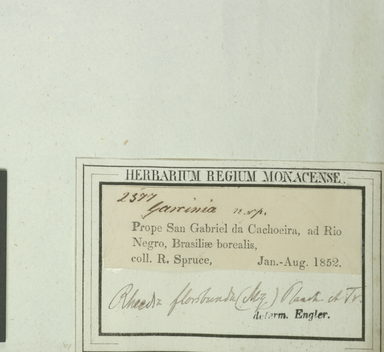 HERBARIUM REGIUM MONACENSE.
2377
Garcinia n. sp.
Prope San Gabriel da Cachoeira, ad Rio
Negro, Brasiliæ borealis,
coll. R. Spruce, Jan.-Aug. 1852.
Rheedia floribunda (Mq.) Planch et Tr.
determ. Engler.